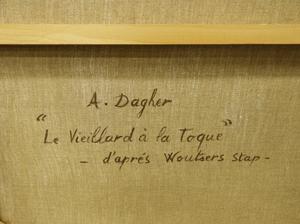 A. Dagher
"Le Vieillard à la Toque"
- d'après Woutsers stap -